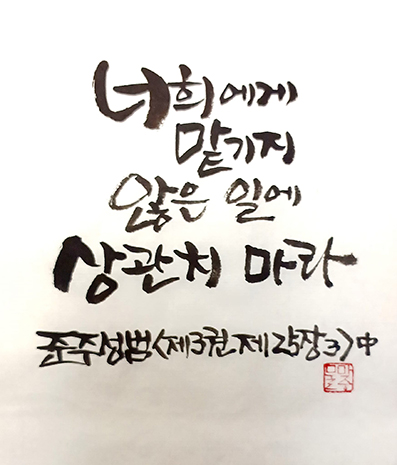 너희에게
맡기지
않은 일에
상관치 마라
준주성범<제3권 제25장3>中